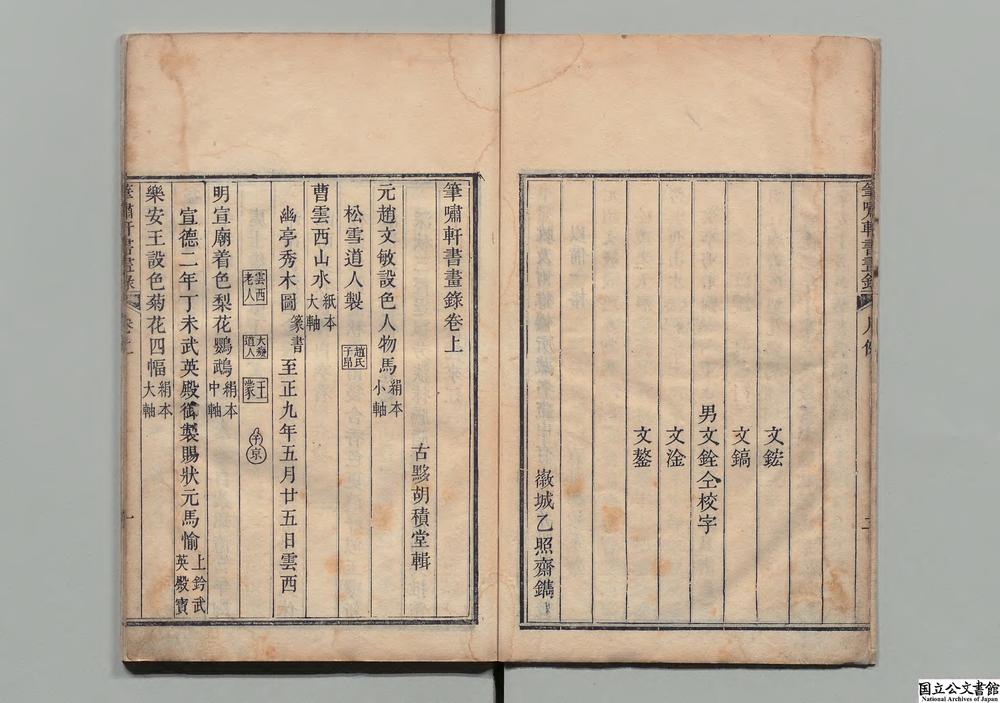 筆嘯軒書畫錄
文鋐
文鎬
男文銓仝校字
文淦
文鏊
徽城乙照齋鐫
筆嘯軒書畫錄卷上
古黟胡積堂輯
元趙文敏設色人物馬絹本小軸
松雪道人製 趙氏子昂
曹雲西山水紙本大軸
幽亭秀木圖篆書至正九年五月廿五日雲西
雲西老人 大癡道人 王蒙 子京
明宣廟着色梨花鸚鵡絹本中軸
宣德二年丁未武英殿御製賜狀元馬愉上鈐武英殿寶
樂安王設色菊花四幅絹本大軸
筆嘯軒書畫錄 卷上 一
国立公文書館
National Archives of Japan